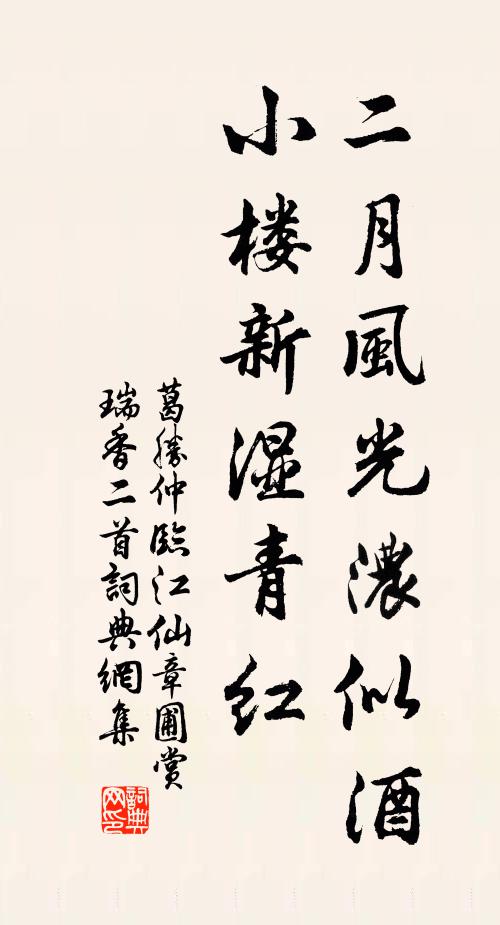 二月風光濃似酒
小楼新湿青红
葛勝仲臨江仙章圃赏
瑞香二首詞典網集
詞典
网印